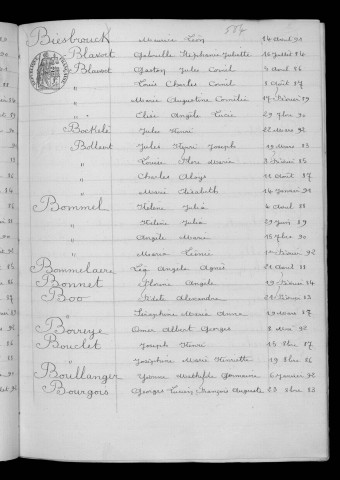 Biesbrouck Maurice Léon 14 Avril 91
Blavoet Gabrielle Stéphanie Juliette 16 Juillet 84
Blavoet Gaston Jules Cornil 3 Avril 86
" Louis Charles Cornil 8 Août 87
" Marie Augustine Cornélie 17 Février 89
" Clise Angèle Lucie 29 7bre 90
Bockelé Jules Henri 22 Mars 92
Bollaert Jules Henri Joseph 19 Mars 83
" Louise Flore Marie 3 Février 85
" Charles Aloys 11 Août 87
" Marie Elisabeth 14 Janvier 92
Bommel Hélène Julia 4 Avril 88
" Hélène Julia 29 Juin 89
" Angèle Marie 15 7bre 90
" Marie Léonie 1er Février 92
Bommelaere Angèle Agnès 21 Avril 88
Bonnet Florine Angèle 19 Février 84
Boo Fidèle Alexandre 24 Février 83
" Séraphine Marie Anna 29 Mars 87
Borreye Omer Albert Georges 8 Mai 92
Bouclet Joseph Henri 15 8bre 87
" Joséphine Marie Henriette 19 8bre 86
Boullanger Yvonne Mathilde Germaine 6 Janvier 92
Bourgois Georges Lucien François Auguste 23 8bre 83